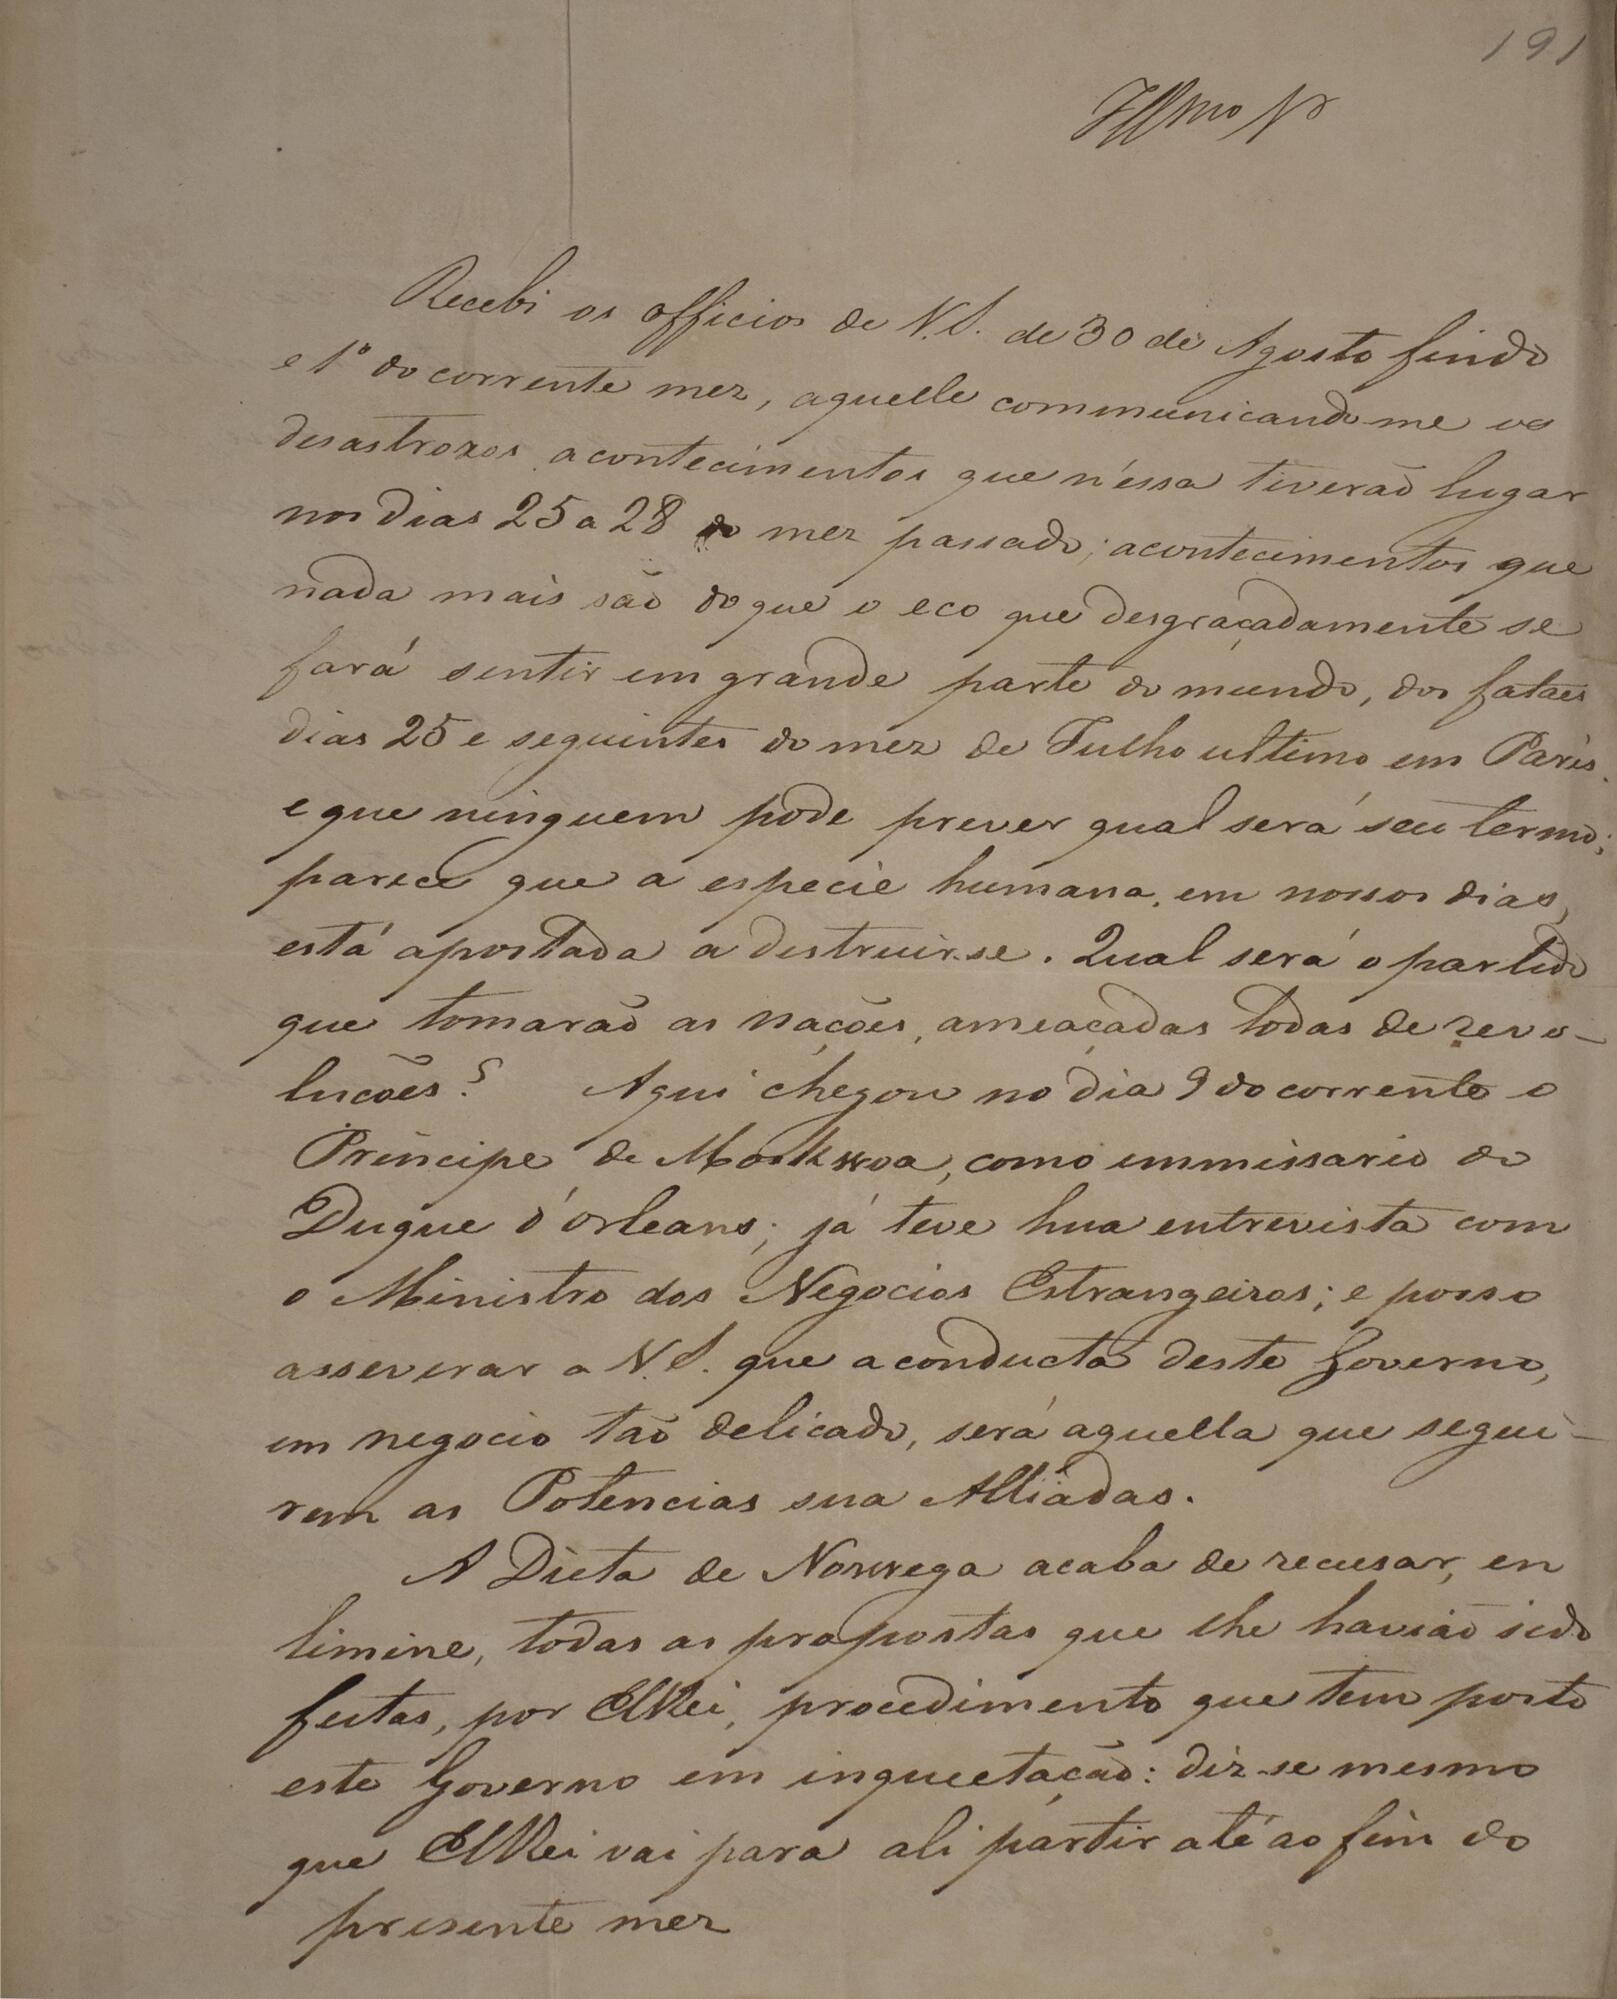 191
Illmo Sr
Recebi os officios de V.S. de 30 de Agosto findo
e 1º do corrente mez, aquelle communicando me os
desastrozos acontecimentos que n'éssa tiverão lugar
nos dias 25 a 28 do mez passado; acontecimentos que
nada mais são do que o eco que desgraçadamente se
fará sentir em grande parte do mundo, dos fataes
dias 25 e seguintes do mez de Julho ultimo em Paris.
e que ninguem pode prever qual será seu termo;
parece que a especie humana, em nossos dias,
está apostada a destruir-se. Qual será o partido
que tomarão as nações, ameaçadas todas de revo-
luções? Aqui chegou no dia 9 do corrente o
Principe de Moskwoa, como immissario do
Duque d'orleans; já teve hua entrevista com
o Ministro dos Negocios Estrangeiros; e posso
asseverar a V.S. que a conducta deste Governo,
em negocio tão delicado, será aquella que segui-
rem as Potencias sua Alliadas.
A Dieta de Norwega acaba de recusar, en
limine, todas as propostas que lhe havião sido
feitas, por ElRei, procedimento que tem posto
este Governo em inquietação: diz-se mesmo
que ElRei vai para ali partir até ao fim do
presente mez